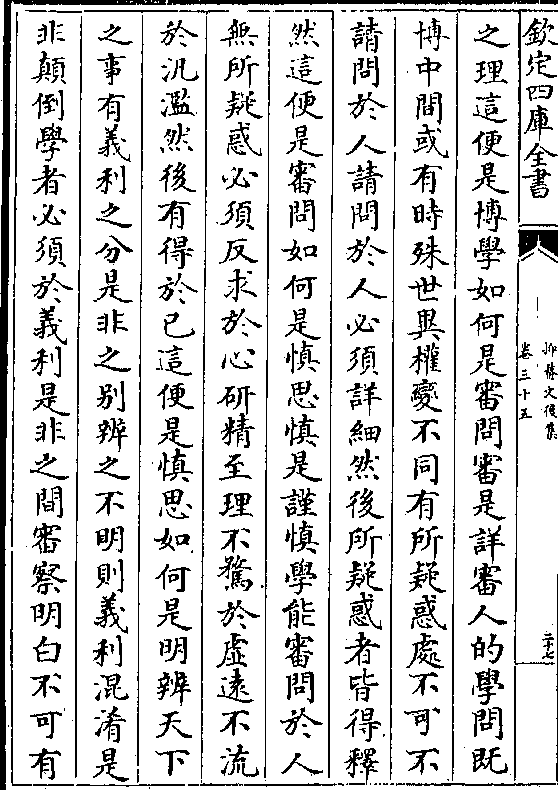 欽定四庫全書
卷三十五
二十七
之理這便是博學如何是審問審是詳審人的學問既
博中間或有時殊世異權變不同有所疑惑處不可不
請問於人請問於人必須詳細然後所疑惑者皆得釋
然這便是審問如何是慎思慎是謹慎學能審問於人
無所疑惑必須反求於心研精至理不騖於虛遠不流
於汎濫然後有得於已這便是慎思如何是明辨天下
之事有義利之分是非之别辨之不明則義利混淆是
非顛倒學者必須於義利是非之間審察明白不可有